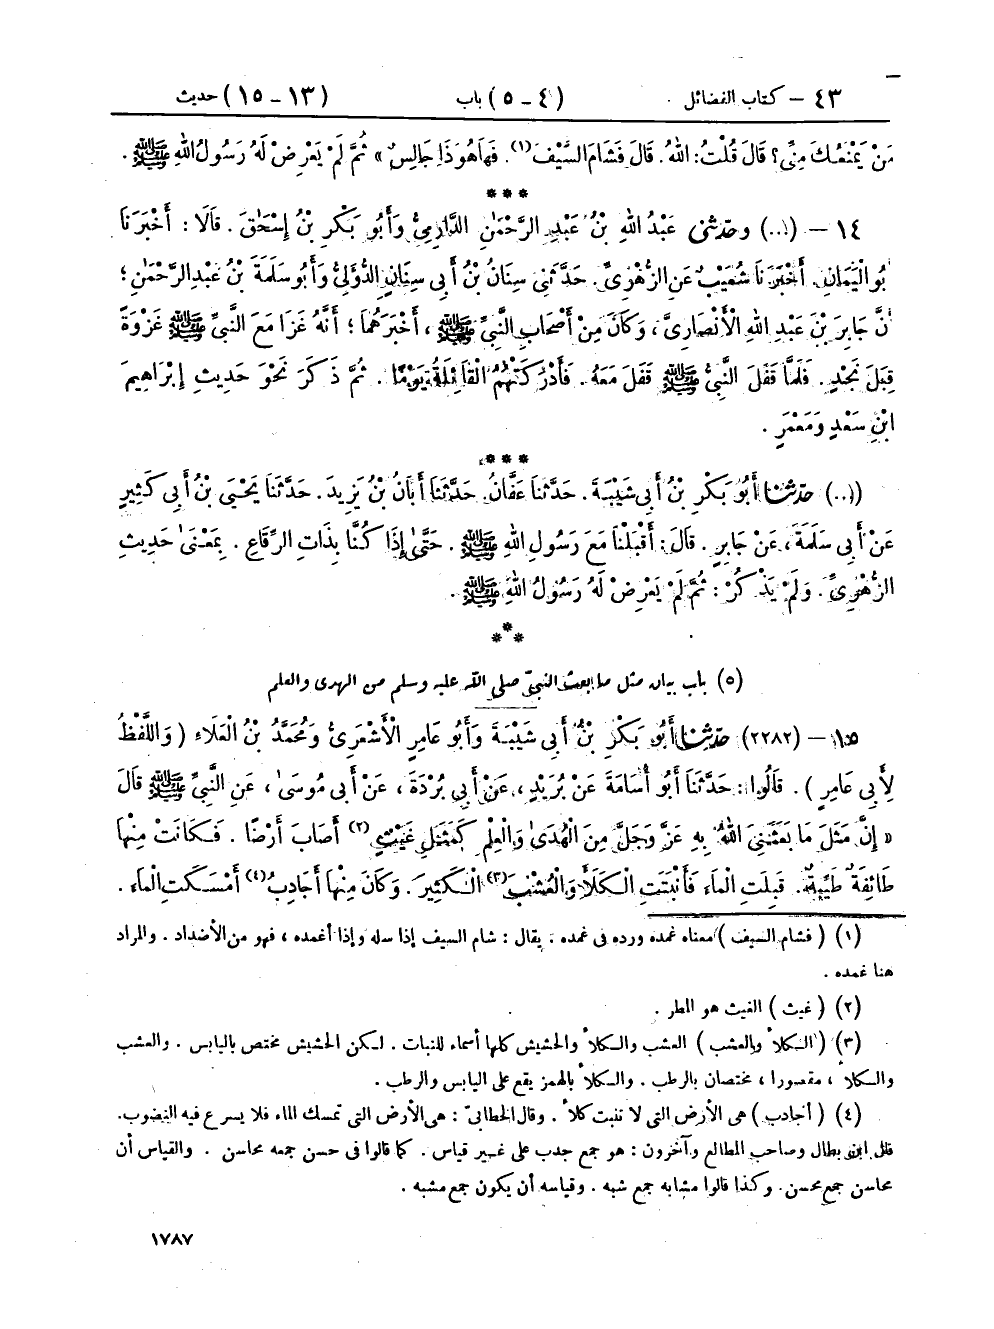 ٤٣ – كتاب الفضائل (٤ – ٥) باب (١٣ – ١٥) حديث
مَنْ يَمْنَعُكَ مِنِّي؟ قَالَ قُلْتُ: اللهُ. قَالَ فَشَامَ السَّيْفَ (١). فَهَاهُوَ ذَا جَالِسٌ » ثُمَّ لَمْ يَعْرِضْ لَهُ رَسُولُ اللهِ ﷺ .
***
١٤ – (...) وحدثني عَبْدُ اللهِ بْنُ عَبْدِ الرَّحْمٰنِ الدَّارِمِيُّ وَأَبُو بَكْرِ بْنُ إِسْحَٰقَ . قَالَا : أَخْبَرَنَا
أَبُو الْيَمَانِ. أَخْبَرَنَا شُعَيْبٌ عَنِ الزُّهْرِيِّ. حَدَّثَنِي سِنَانُ بْنُ أَبِي سِنَانٍ الدُّؤَلِيُّ وَأَبُو سَلَمَةَ بْنُ عَبْدِ الرَّحْمٰنِ ؛
أَنَّ جَابِرَ بْنَ عَبْدِ اللهِ الْأَنْصَارِيَّ ، وَكَانَ مِنْ أَصْحَابِ النَّبِيِّ ﷺ ، أَخْبَرَهُمَا ؛ أَنَّهُ غَزَا مَعَ النَّبِيِّ ﷺ غَزْوَةً
قِبَلَ نَجْدٍ . فَلَمَّا قَفَلَ النَّبِيُّ ﷺ قَفَلَ مَعَهُ . فَأَدْرَكَتْهُمُ الْقَائِلَةُ يَوْمًا . ثُمَّ ذَكَرَ نَحْوَ حَدِيثِ إِبْرَاهِيمَ
ابْنِ سَعْدٍ وَمَعْمَرٍ .
***
(...) حدثنا أَبُو بَكْرِ بْنُ أَبِي شَيْبَةَ . حَدَّثَنَا عَفَّانُ. حَدَّثَنَا أَبَانُ بْنُ يَزِيدَ. حَدَّثَنَا يَحْيَى بْنُ أَبِي كَثِيرٍ
عَنْ أَبِي سَلَمَةَ ، عَنْ جَابِرٍ . قَالَ : أَقْبَلْنَا مَعَ رَسُولِ اللهِ ﷺ . حَتَّىٰ إِذَا كُنَّا بِذَاتِ الرِّقَاعِ . بِمَعْنَىٰ حَدِيثِ
الزُّهْرِيِّ . وَلَمْ يَذْكُرْ : ثُمَّ لَمْ يَعْرِضْ لَهُ رَسُولُ اللهِ ﷺ .
***
(٥) باب بيان مثل ما بعث النبيّ صلى الله عليه وسلم من الهدى والعلم
١٥ – (٢٢٨٢) حدثنا أَبُو بَكْرِ بْنُ أَبِي شَيْبَةَ وَأَبُو عَامِرٍ الْأَشْعَرِيُّ وَمُحَمَّدُ بْنُ الْعَلَاءِ ( وَاللَّفْظُ
لِأَبِي عَامِرٍ ) . قَالُوا : حَدَّثَنَا أَبُو أُسَامَةَ عَنْ بُرَيْدٍ ، عَنْ أَبِي بُرْدَةَ ، عَنْ أَبِي مُوسَىٰ ، عَنِ النَّبِيِّ ﷺ قَالَ
« إِنَّ مَثَلَ مَا بَعَثَنِيَ اللهُ بِهِ عَزَّ وَجَلَّ مِنَ الْهُدَىٰ وَالْعِلْمِ كَمَثَلِ غَيْثٍ (٢) أَصَابَ أَرْضًا . فَكَانَتْ مِنْهَا
طَائِفَةٌ طَيِّبَةٌ. قَبِلَتِ الْمَاءَ فَأَنْبَتَتِ الْكَلَأَ وَالْعُشْبَ (٣) الْكَثِيرَ . وَكَانَ مِنْهَا أَجَادِبُ (٤) أَمْسَكَتِ الْمَاءَ .
(١) ( فشام السيف ) معناه غمده ورده فى غمده . يقال : شام السيف إذا سله وإذا أغمده ، فهو من الأضداد . والمراد
هنا غمده .
(٢) ( غيث ) الغيث هو المطر .
(٣) ( الكلأ والعشب ) العشب والكلأ والحشيش كلها أسماء للنبات . لكن الحشيش مختص باليابس . والعشب
والكلأ ، مقصورا ، مختصان بالرطب . والكلأ بالهمز يقع على اليابس والرطب .
(٤) ( أجادب ) هى الأرض التى لا تنبت كلأ . وقال الخطابىّ : هى الأرض التى تمسك الماء فلا يسرع فيه النضوب.
قال ابن بطال وصاحب المطالع وآخرون : هو جمع جدب على غير قياس . كما قالوا فى حسن جمعه محاسن . والقياس أن
محاسن جمع محسن. وكذا قالوا مشابه جمع شبه . وقياسه أن يكون جمع مشبه .
١٧٨٧